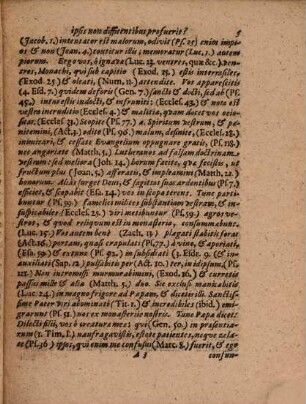 ipsis non diffitentibus profuerit? 5
(Jacob. 1.) intentator est malorum, odivit (Ps. 25) enim impi-
os & non (Joan. 4) coutitur illis; memoratur (Luc. 1.) autem
piorum. Ergo vos, ò ignava (Luc. 12. ventres, quæ &c.) ven-
tres, Monachi, qui sub capitio (Exod. 25.) estis interrasiles,
(Exod. 25) & oleati, (Num. 11.) attendite. Vos apparenfitis
(4. Esd. 7.) quidem deforis (Gen. 7.) sancti & docti, sed ab (Ps.
45,) intus estis indocti, & infruniti: (Ecclesf. 43.) & note est
vestra increatio (Ecclesf. 4) & malitia, quam dicet vos otio-
sos (Ecclesf. 33.) Scopite (Ps. 77.) à. Spiritum vestrum, & pœ-
nitemini, (Act. 3) odite (Ps. 96.) malum, desinite, (Ecclef. 28.)
inimicari, & cessate Evangelium oppugnare gratis, (Ps. 118.)
nec angariate (Matth. 5.) Lutheranos ad falsam doctrinam
vestram: sed meliora (Joh. 14.) horum facite, qua fecistis, ut
fructum plus (Joan, 5.) afferatis, & impleamini (Matth. 22.)
bonorum. Aliàs surget Deus, & sagittis suis ardentibus (Ps. 7.)
efficiet, & scopabit (Esa. 14.) vos in scopa terens. Tunc parti-
buntur (Ps. 59.) famelici milites substantiam vestram, & in-
suspicabiles (Ecclesf. 25.) viri metibuntur (Ps. 59.) agros ve-
stros, & quod reliquum est in monasterio, consummabunt.
(Luc. 15.) Vos autem bene (Zach, 13.) plagati stabitis foras
(Act. 16.) portam, quasi crapulati (Ps. 77.) à vino, & aporiati,
(Esa. 59) & extento (Ps. 91.) in subsidiati (3. Esdr. 9. (& in-
auxiliati (Sap. 12.) pulsabitis per (Act. 10.) ter, in idipsum, (Ps.
121.) Non intromissi murmurabimini, (Exod. 16.) & curretis
passus mille & alia (Matth. 5.) duo. Sic excusi manicabitis
(Luc. 24.) in magno frigore ad Papam, & dicetis illi. Sanctis-
sime Pater viri abominati (Tit. 1) & incredibiles (ibid.) emi-
grarunt (Ps. 52.) nos ex monasteriis nostris. Tunc Papa dicet:
Dilecti filii, vos ò creatura mea: qui (Gen. 50.) in præsentia-
rum (1. Tim. 1.) naufragavistis, estote patientes, neque zela-
te (Ps. 36) ipsos, qui enim me confusus (Marc. 8.) fuerit, & ego
A 3 confun-